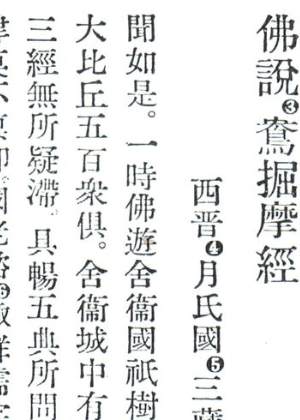 佛說❸鴦掘摩經
西晋❹月氏國❺三藏
聞如是。一時佛遊舍衞國祇樹
大比丘五百衆俱。舍衞城中有
三經無所疑滯。具暢五典所問
國老諮❻